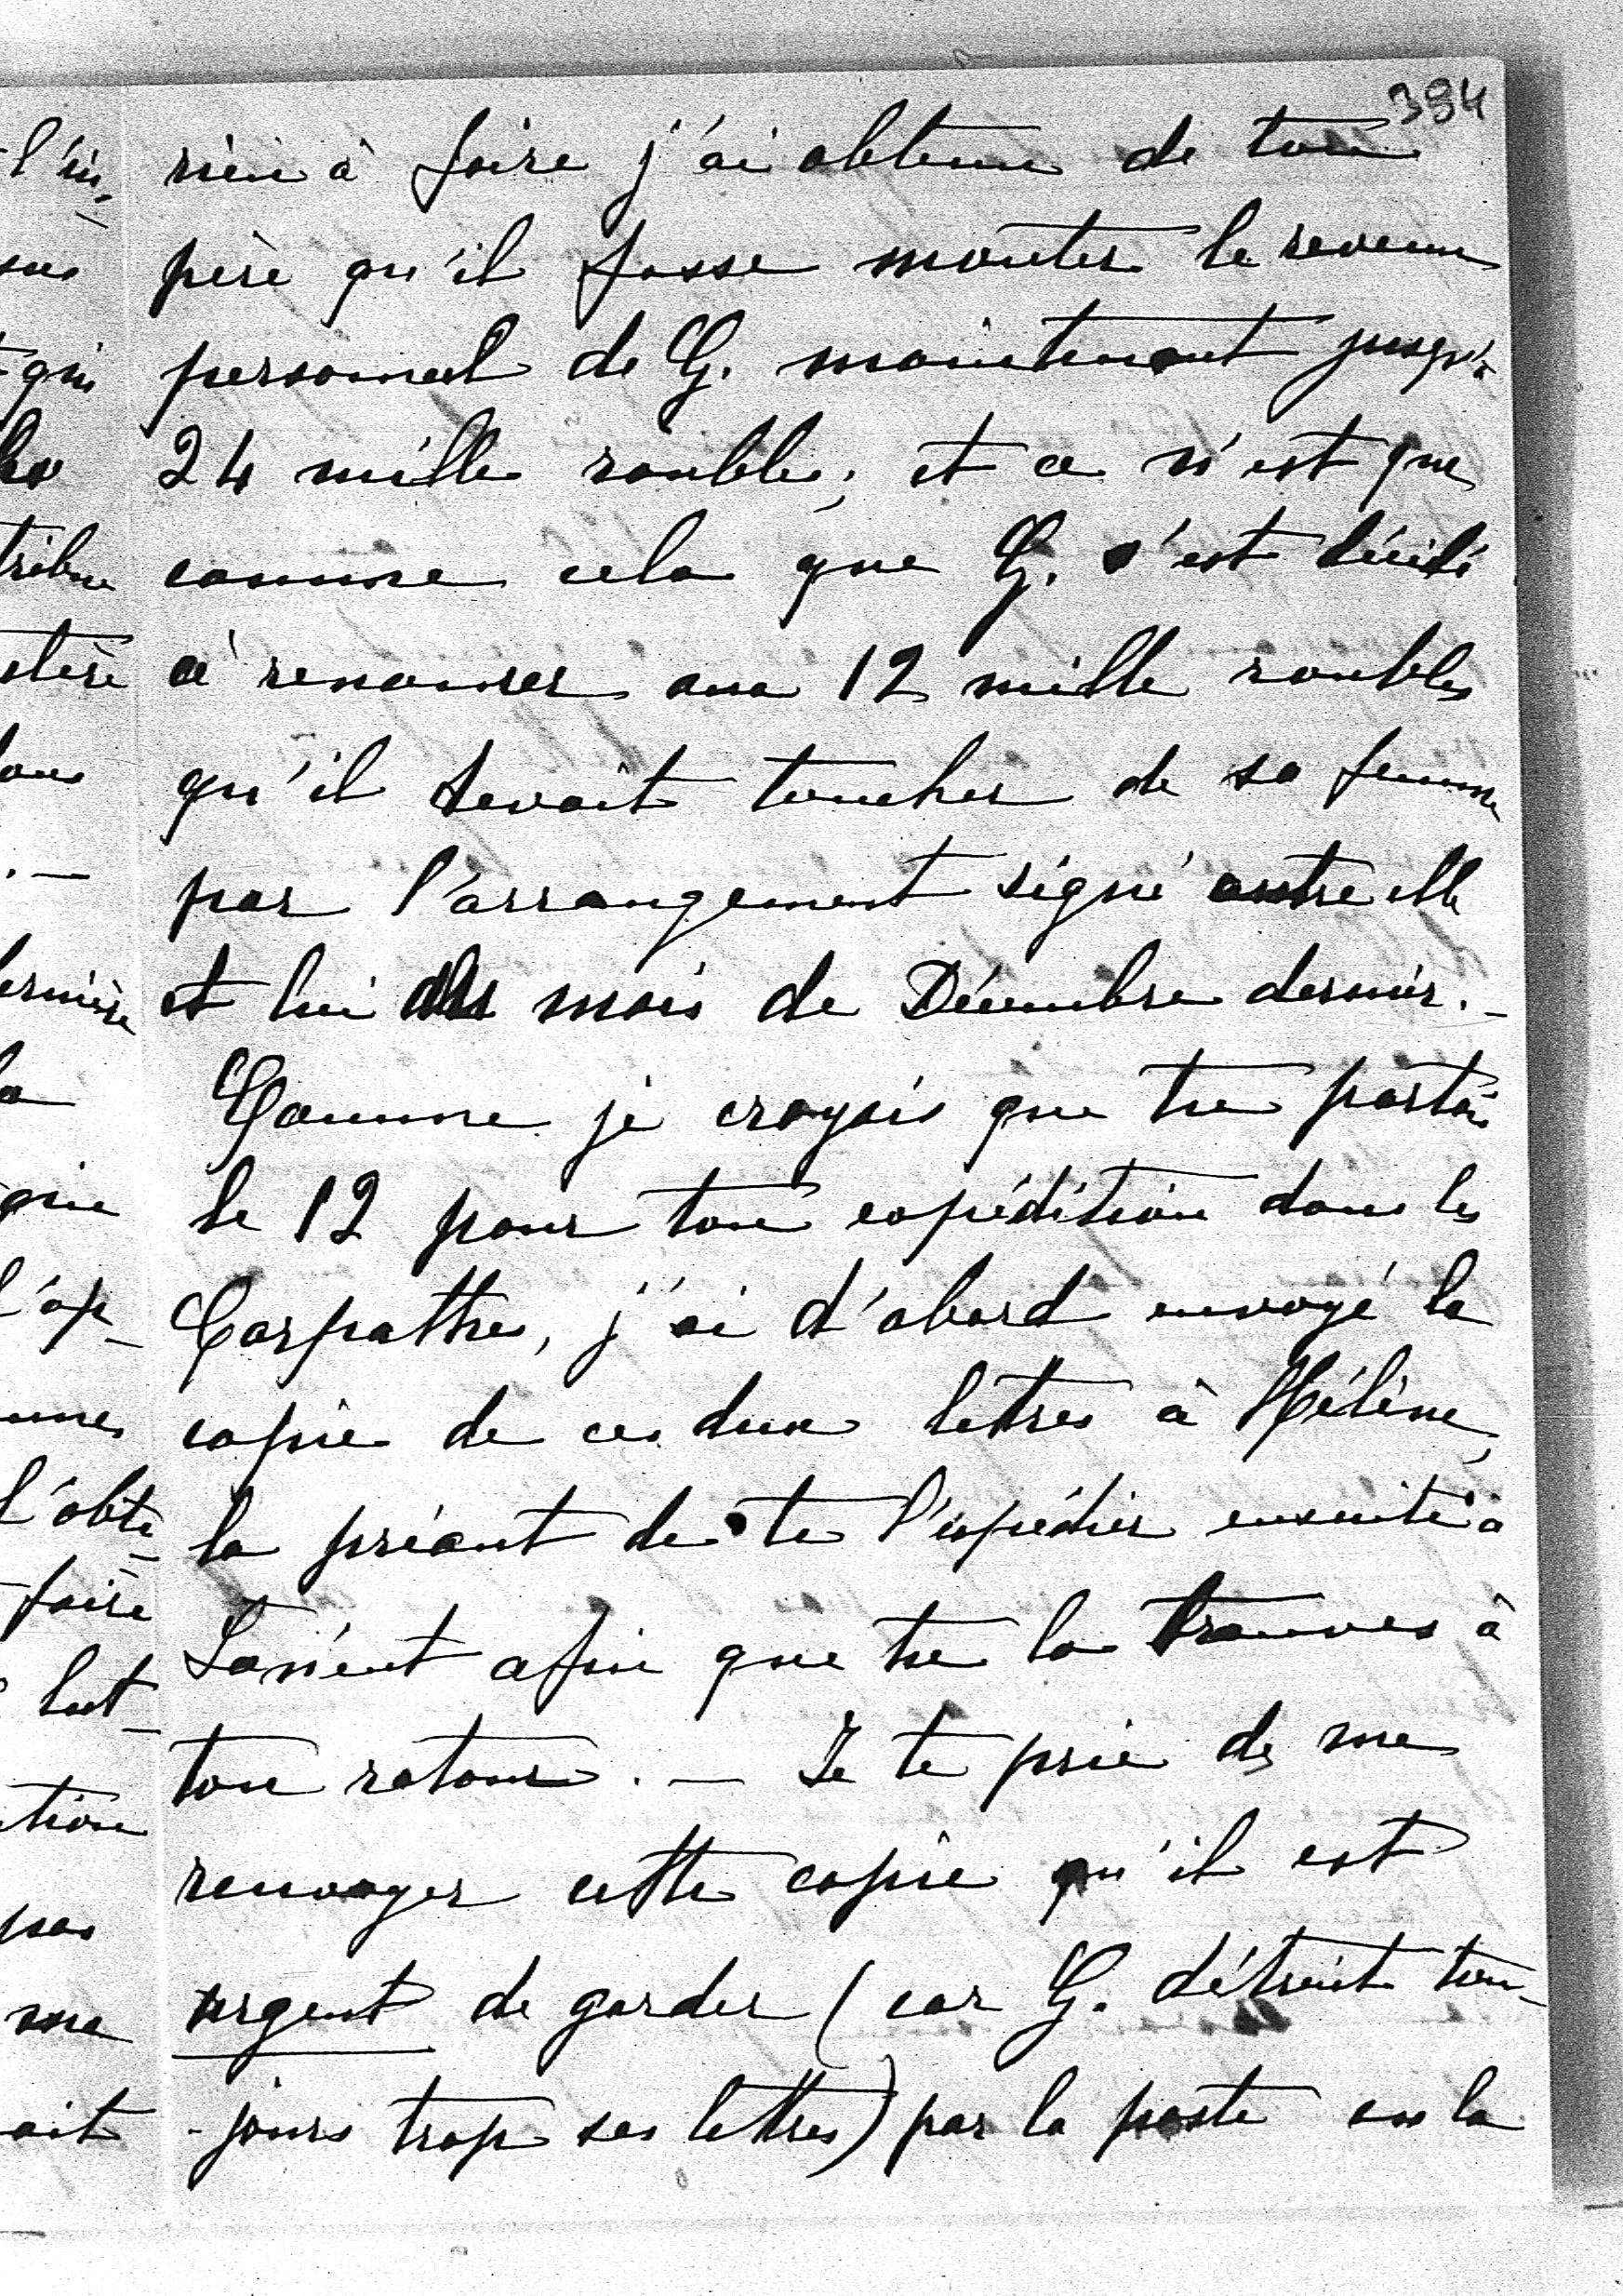 394
rien à faire j'ai obtenu de ton
père qu'il fasse monter le revenu
personnel de G. maintenant jusqu'à
24 mille roubles; et ce n'est que
comme cela que G. s'est décidé
à renoncer aux 12 mille roubles
qu'il devait toucher de sa femme
par l'arrangement signé entre elle
et lui au mois de Décembre dernier. -
Comme je croyais que tu partais
le 12 pour ton expédition dans les
Carpathes, j'ai d'abord envoyé la
copie de ces deux lettres à Hélène,
la priant de te l'expédier ensuite à
afin que tu la trouves à
ton retour. - Je te prie de me
renvoyer cette copie qu'il est
urgent de garder (car G. détruit tou-
-jours trop ses lettres) par la poste en la